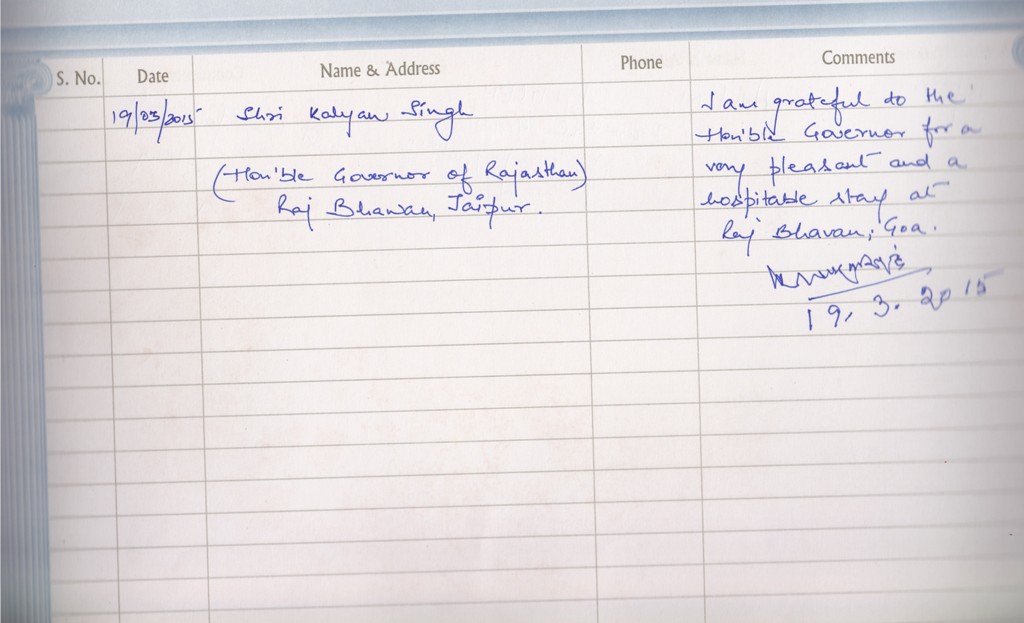 S. No. Date Name & Address Phone Comments
19/03/2015 Shri Kalyan Singh
(Hon'ble Governor of Rajasthan)
Raj Bhawan, Jaipur.
I am grateful to the
Hon'ble Governor for a
very pleasant and a
hospitable stay at
Raj Bhavan, Goa.
19. 3. 2015